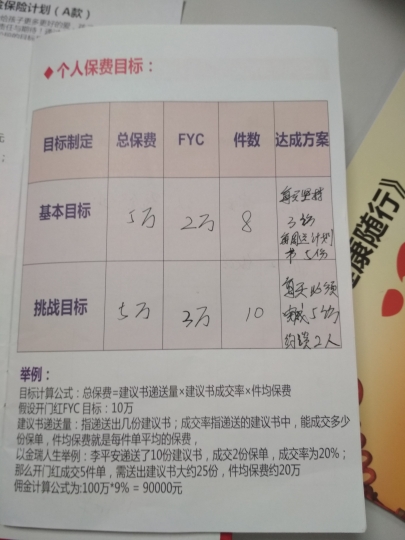 保险计划（A款）
◆个人保费目标：
目标制定 总保费 FYC 件数 达成方案
基本目标 5万 2万 8
3份
书5份
挑战目标 5万 3万 10 每天必须
5份
约谈2人
举例：
目标计算公式：总保费=建议书递送量×建议书成交率×件均保费
假设开门红FYC 目标：10万
建议书递送量：指递送出几份建议书；成交率指递送的建议书中，能成交多少
份保单，件均保费就是每件单平均的保费，
以金瑞人生举例：李平安递送了10份建议书，成交2份保单，成交率为20%；
那么开门红成交5件单，需送出建议书大约25份，件均保费约20万
佣金计算公式为:100万*9% = 90000元
健康随行》